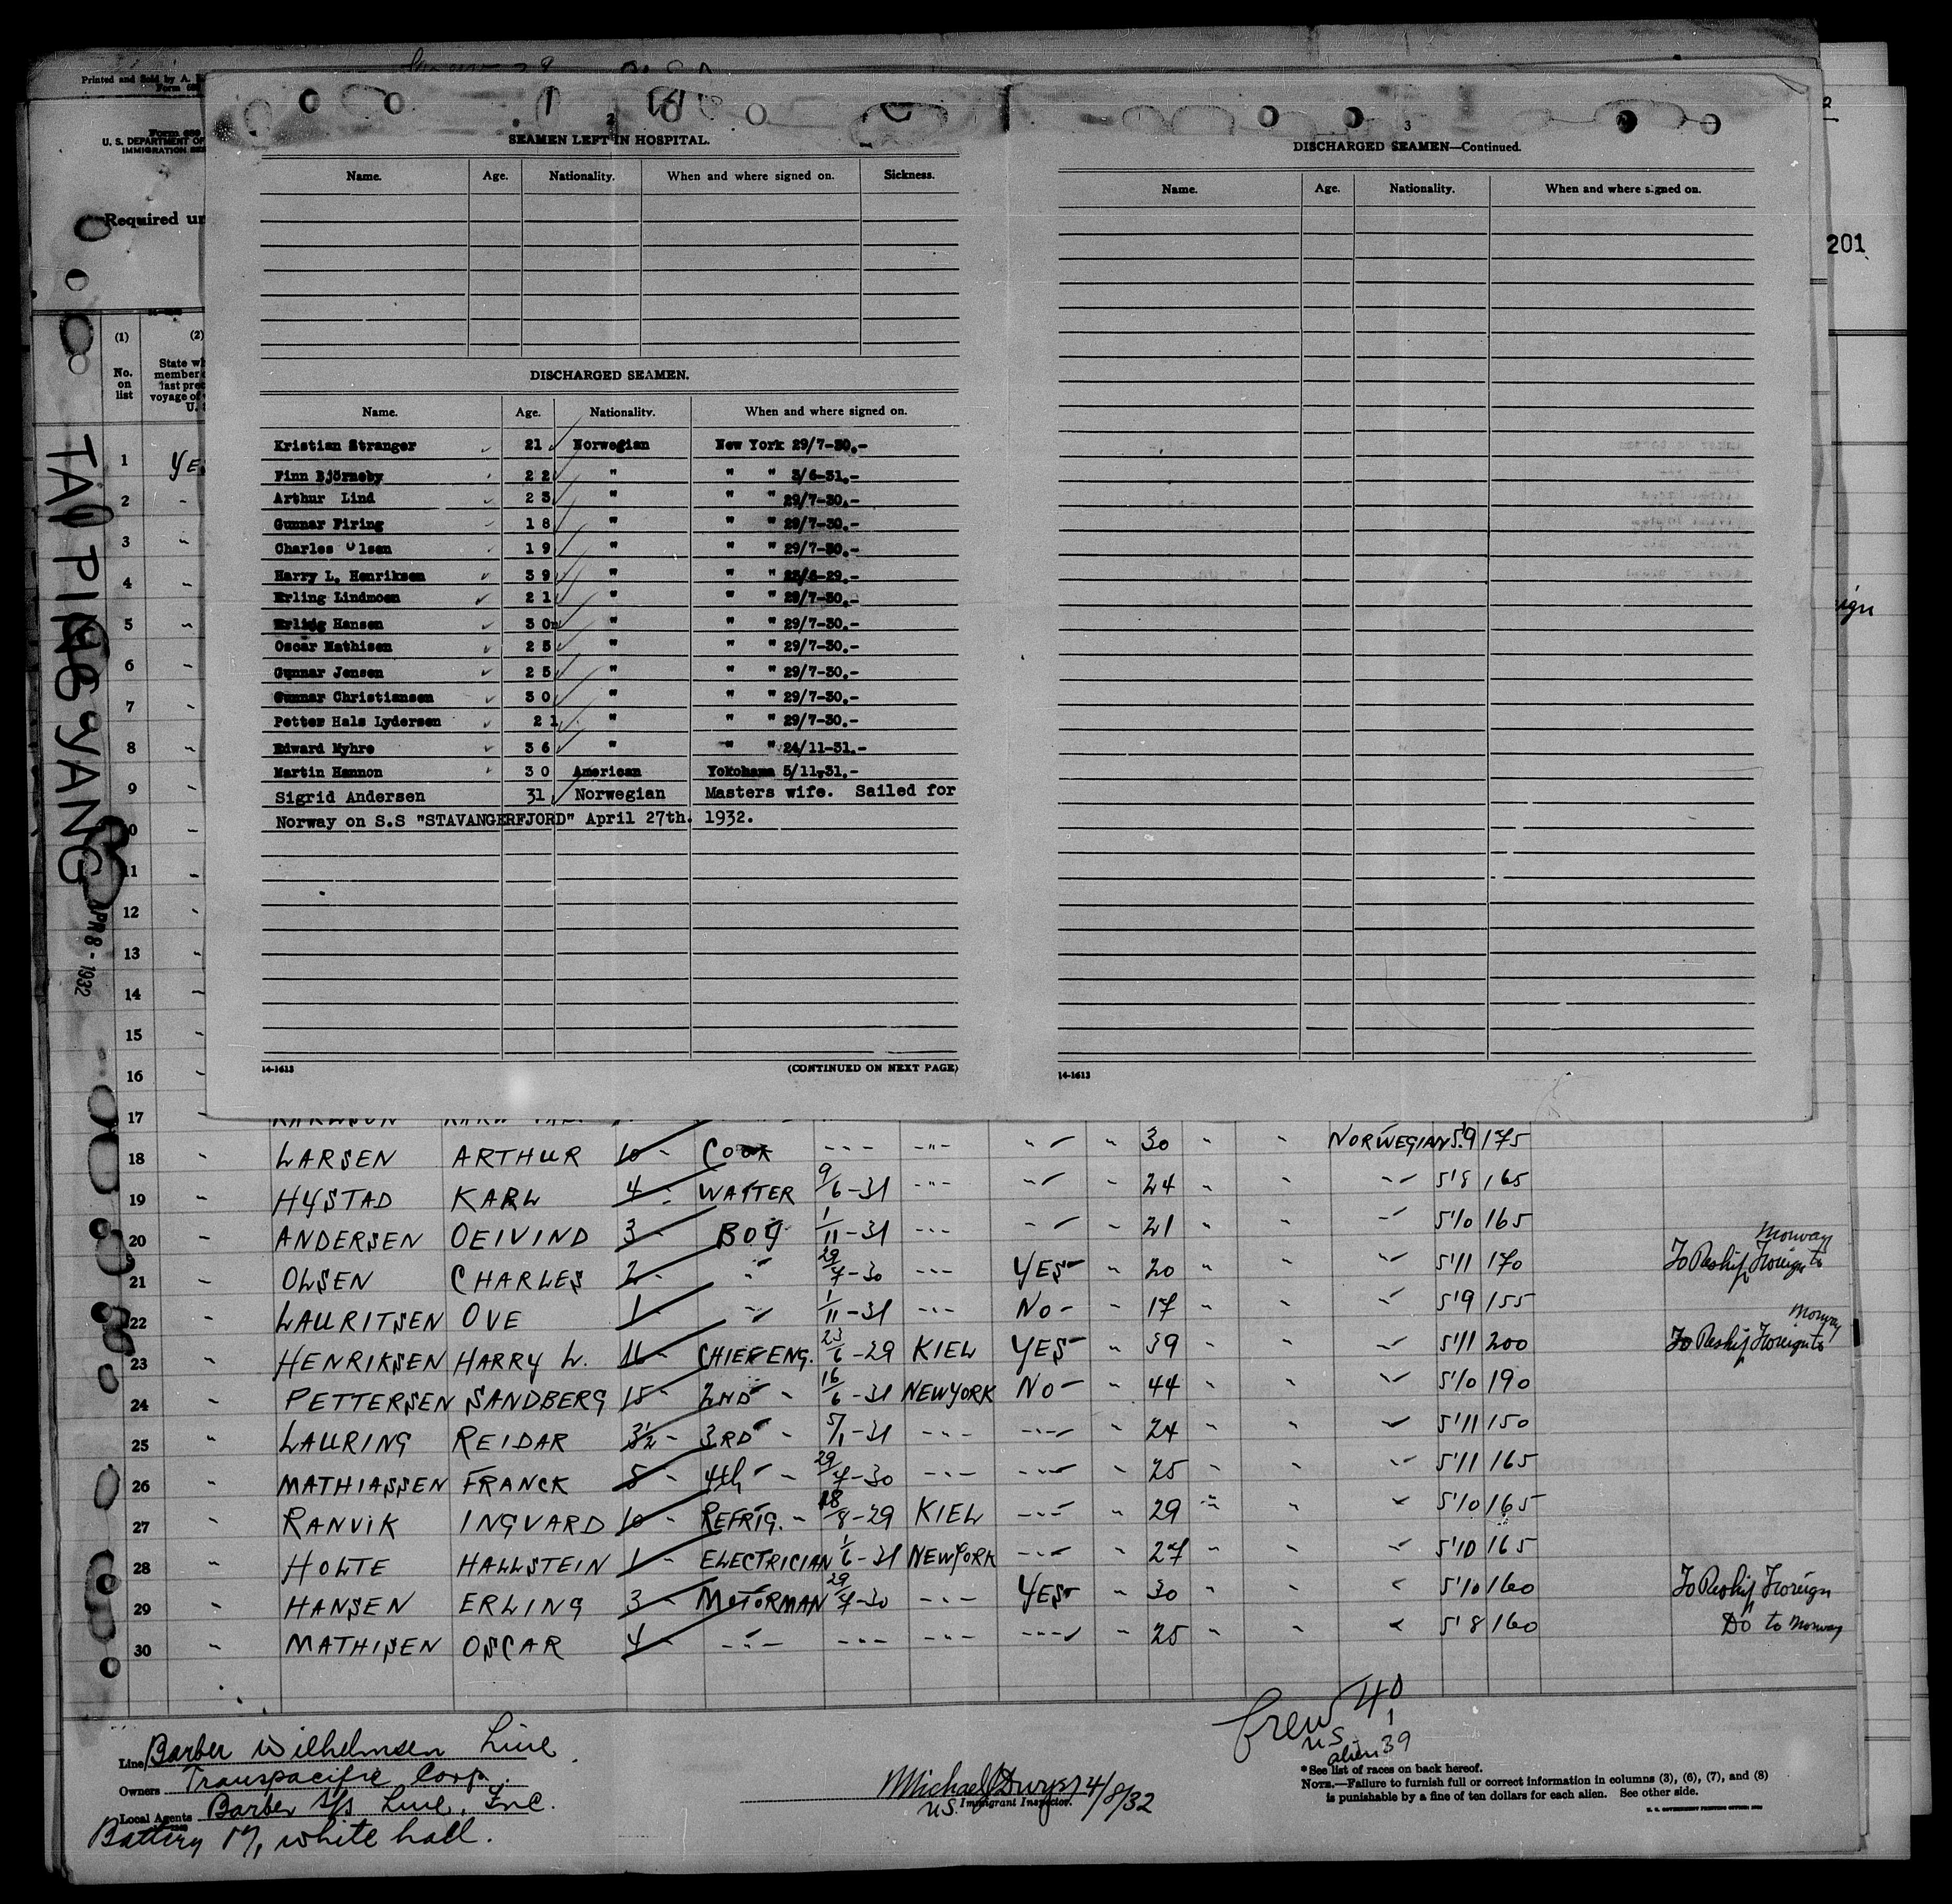 Printed and Sold by A.
Form 680
U. S. DEPARTMENT OF
IMMIGRATION
Required un
201
(1) (2)
No. on list
State wh
member
last prec
voyage of
U.
TAI PING YANG
APR 8 - 1932
2
SEAMEN LEFT IN HOSPITAL.
Name. Age. Nationality. When and where signed on. Sickness.
DISCHARGED SEAMEN.
Name. Age. Nationality. When and where signed on.
Kristian Stranger 21 Norwegian New York 29/7-30.-
Finn Björneby 22 " " " 3/6-31.-
Arthur Lind 23 " " " 29/7-30.-
Gunnar Firing 18 " " " 29/7-30.-
Charles Olsen 19 " " " 29/7-30.-
Harry L. Henriksen 39 " " " 23/6-29.-
Erling Lindmoen 21 " " " 29/7-30.-
Erling Hansen 30 " " " 29/7-30.-
Oscar Mathisen 25 " " " 29/7-30.-
Gunnar Jensen 25 " " " 29/7-30.-
Gunnar Christiansen 30 " " " 29/7-30.-
Petter Hals Lydersen 21 " " " 29/7-30.-
Edward Myhre 36 " " " 24/11-31.-
Martin Hannon 30 American Yokohama 5/11-31.-
Sigrid Andersen 31 Norwegian Masters wife. Sailed for
Norway on S.S "STAVANGERFJORD" April 27th. 1932.
14-1613 (CONTINUED ON NEXT PAGE)
3
DISCHARGED SEAMEN—Continued.
Name. Age. Nationality. When and where signed on.
14-1613
1 YE
2
3
4
5
6
7
8
9
10
11
12
13
14
15
16
17
18 " LARSEN ARTHUR 10 " COOK " " " " 30 " " NORWEGIAN 5'9 175
19 " HYSTAD KARL 4 " WAITER 9/6-31 " " " 24 " " " 5'8 165
20 " ANDERSEN OEIVIND 3 " BOY 1/11-31 " " " 21 " " " 5'10 165
21 " OLSEN CHARLES 2 " " 29/7-30 " YES " 20 " " " 5'11 170 To Reship Foreign to Norway
22 " LAURITSEN OVE 1 " " 1/11-31 " NO " 17 " " " 5'9 155
23 " HENRIKSEN HARRY L. 16 " CHIEF ENG. 23/6-29 KIEL YES " 39 " " 5'11 200 To Reship Foreign to Norway
24 " PETTERSEN SANDBERG 15 " 2ND " 16/6-31 NEW YORK NO " 44 " " " 5'10 190
25 " LAURING REIDAR 3½ " 3RD " 5/1-31 " " " 24 " " " 5'11 150
26 " MATHIASSEN FRANCK 8 " 4th " 29/7-30 " " " 25 " " " 5'11 165
27 " RANVIK INGVARD 10 " REFRIG. " 18/8-29 KIEL " " 29 " " " 5'10 165
28 " HOLTE HALLSTEIN 1 " ELECTRICIAN 1/6-31 NEW YORK " " 27 " " " 5'10 165
29 " HANSEN ERLING 3 " MOTORMAN 29/7-30 " YES " 30 " " " 5'10 160 To Reship Foreign
30 " MATHISEN OSCAR 4 " " " " " " 25 " " " 5'8 160 Do to Norway
Crew 40
U.S. 1
alien 39
Line Barber Wilhelmsen Line
Owners Transpacific Corp.
Local Agents Barber S/S Line, Inc.
Battery Pl, White hall.
Michael 4/8/32
U.S. Immigrant Inspector.
*See list of races on back hereof.
NOTE.—Failure to furnish full or correct information in columns (3), (6), (7), and (8)
is punishable by a fine of ten dollars for each alien. See other side.
U. S. GOVERNMENT PRINTING OFFICE